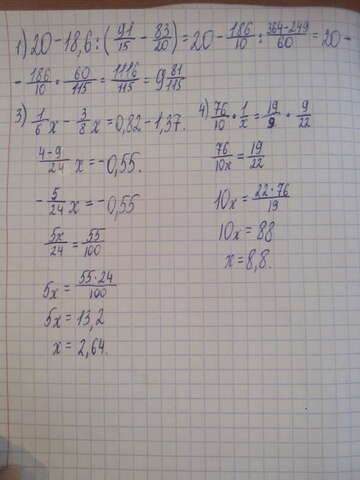 1) 20 - 18,6 : (91/15 - 83/20) = 20 - 186/10 : 364-249/60 = 20 -
- 186/10 · 60/115 = 1116/115 = 9 81/115
3) 1/6 x - 3/8 x = 0,82 - 1,37.
4-9/24 x = -0,55.
- 5/24 x = -0,55
5x/24 = 55/100
5x = 55·24/100
5x = 13,2
x = 2,64.
4) 76/10 · 1/x = 19/9 · 9/22
76/10x = 19/22
10x = 22·76/19
10x = 88
x = 8,8.